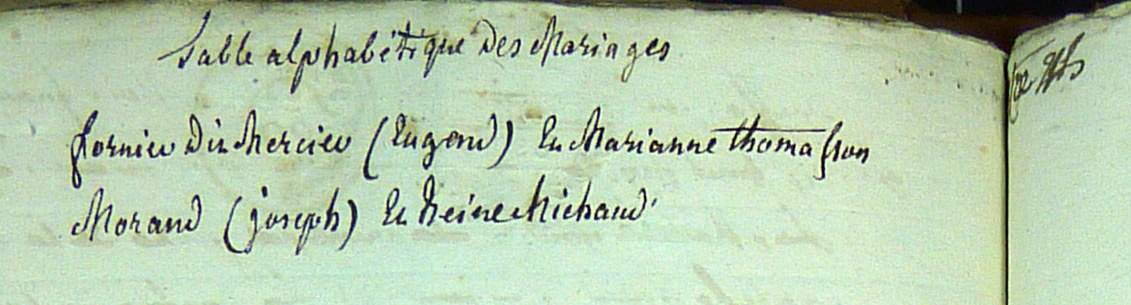 Table alphabétique Des Mariages
fornier Dit Mercier (Eugend) Et Marianne thomasson
Morand (joseph) Et Reine Michaud